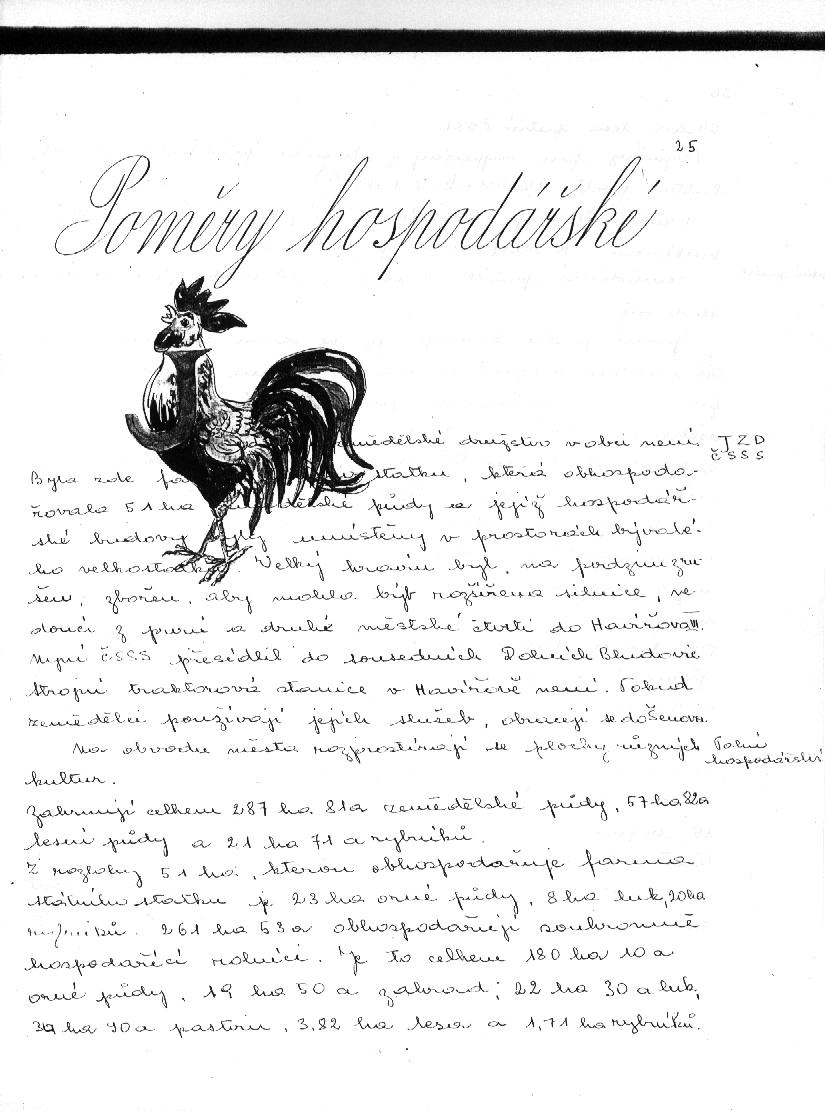 25
Poměry hospodářské
J zemědělské družstvo v obci není. JZD
ČSSS
Byla zde statku, která obhospoda-
řovala 51 ha půdy a jejíž hospodář-
ské budovy byly umístěny v prostorách bývalé-
ho velkostatku. Velký kravín byl, na podzim zru-
šen, zbořen, aby mohla býti rozšířena silnice, ve-
doucí z první a druhé městské čtvrti do Havířova III.
Nyní ČSSS přesídlil do sousedních Dolních Bludovic
Strojní traktorová stanice v Havířově není. Pokud
zemědělci používají jejich služeb, obracejí se do Šenova.
Na obvodu města rozprostírají se plochy různých Polní
hospodářství
kultur.
Zahrnují celkem 287 ha 81a zemědělské půdy, 57 ha 82a
lesní půdy a 21 ha 71 a rybníků.
Z rozlohy 51 ha, kterou obhospodařuje farma
státního statku je 23 ha orné půdy, 8 ha luk, 20 ha
rybníků. 261 ha 53 a obhospodařují soukromně
hospodařící rolníci. Je to celkem 180 ha 10 a
orné půdy, 19 ha 50 a zahrad; 22 ha 30 a luk,
ha 90 a pastvin, 3,82 ha lesa a 1,71 ha rybníků.